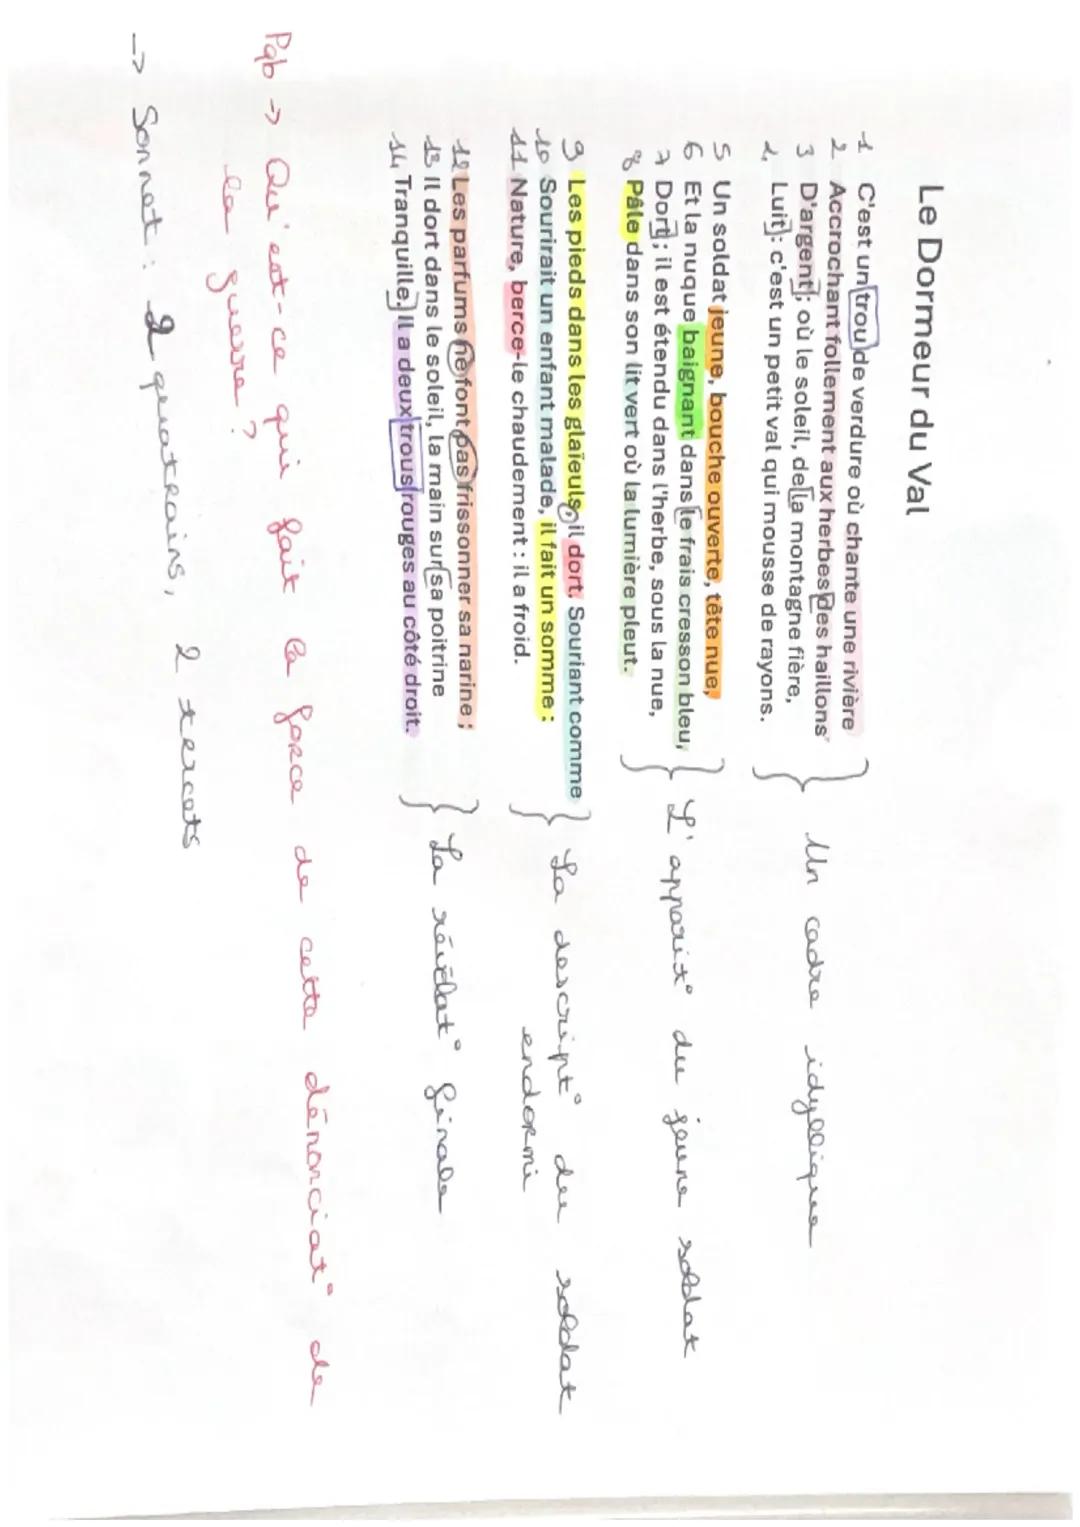 Le Dormeur du Val
1 C'est un trou de verdure où chante une rivière
2 Accrochant follement aux herbes des haillons
3 D'argent ; où le soleil, de la montagne fière,
4 Luit : c'est un petit val qui mousse de rayons.
Un cadre idyllique
5 Un soldat jeune, bouche ouverte, tête nue,
6 Et la nuque baignant dans le frais cresson bleu,
7 Dort ; il est étendu dans l'herbe, sous la nue,
8 Pâle dans son lit vert où la lumière pleut.
L'apparit° du jeune soldat
9 Les pieds dans les glaïeuls, il dort. Souriant comme
10 Sourirait un enfant malade, il fait un somme :
11 Nature, berce-le chaudement : il a froid.
La descript° du soldat
endormi
12 Les parfums ne font pas frissonner sa narine ;
13 Il dort dans le soleil, la main sur sa poitrine
14 Tranquille. Il a deux trous rouges au côté droit.
La révélat° finale
Pqb -> Qu'est-ce qui fait la force de cette dénonciat° de
la guerre ?
-> Sonnet : 2 quatrains, 2 tercets